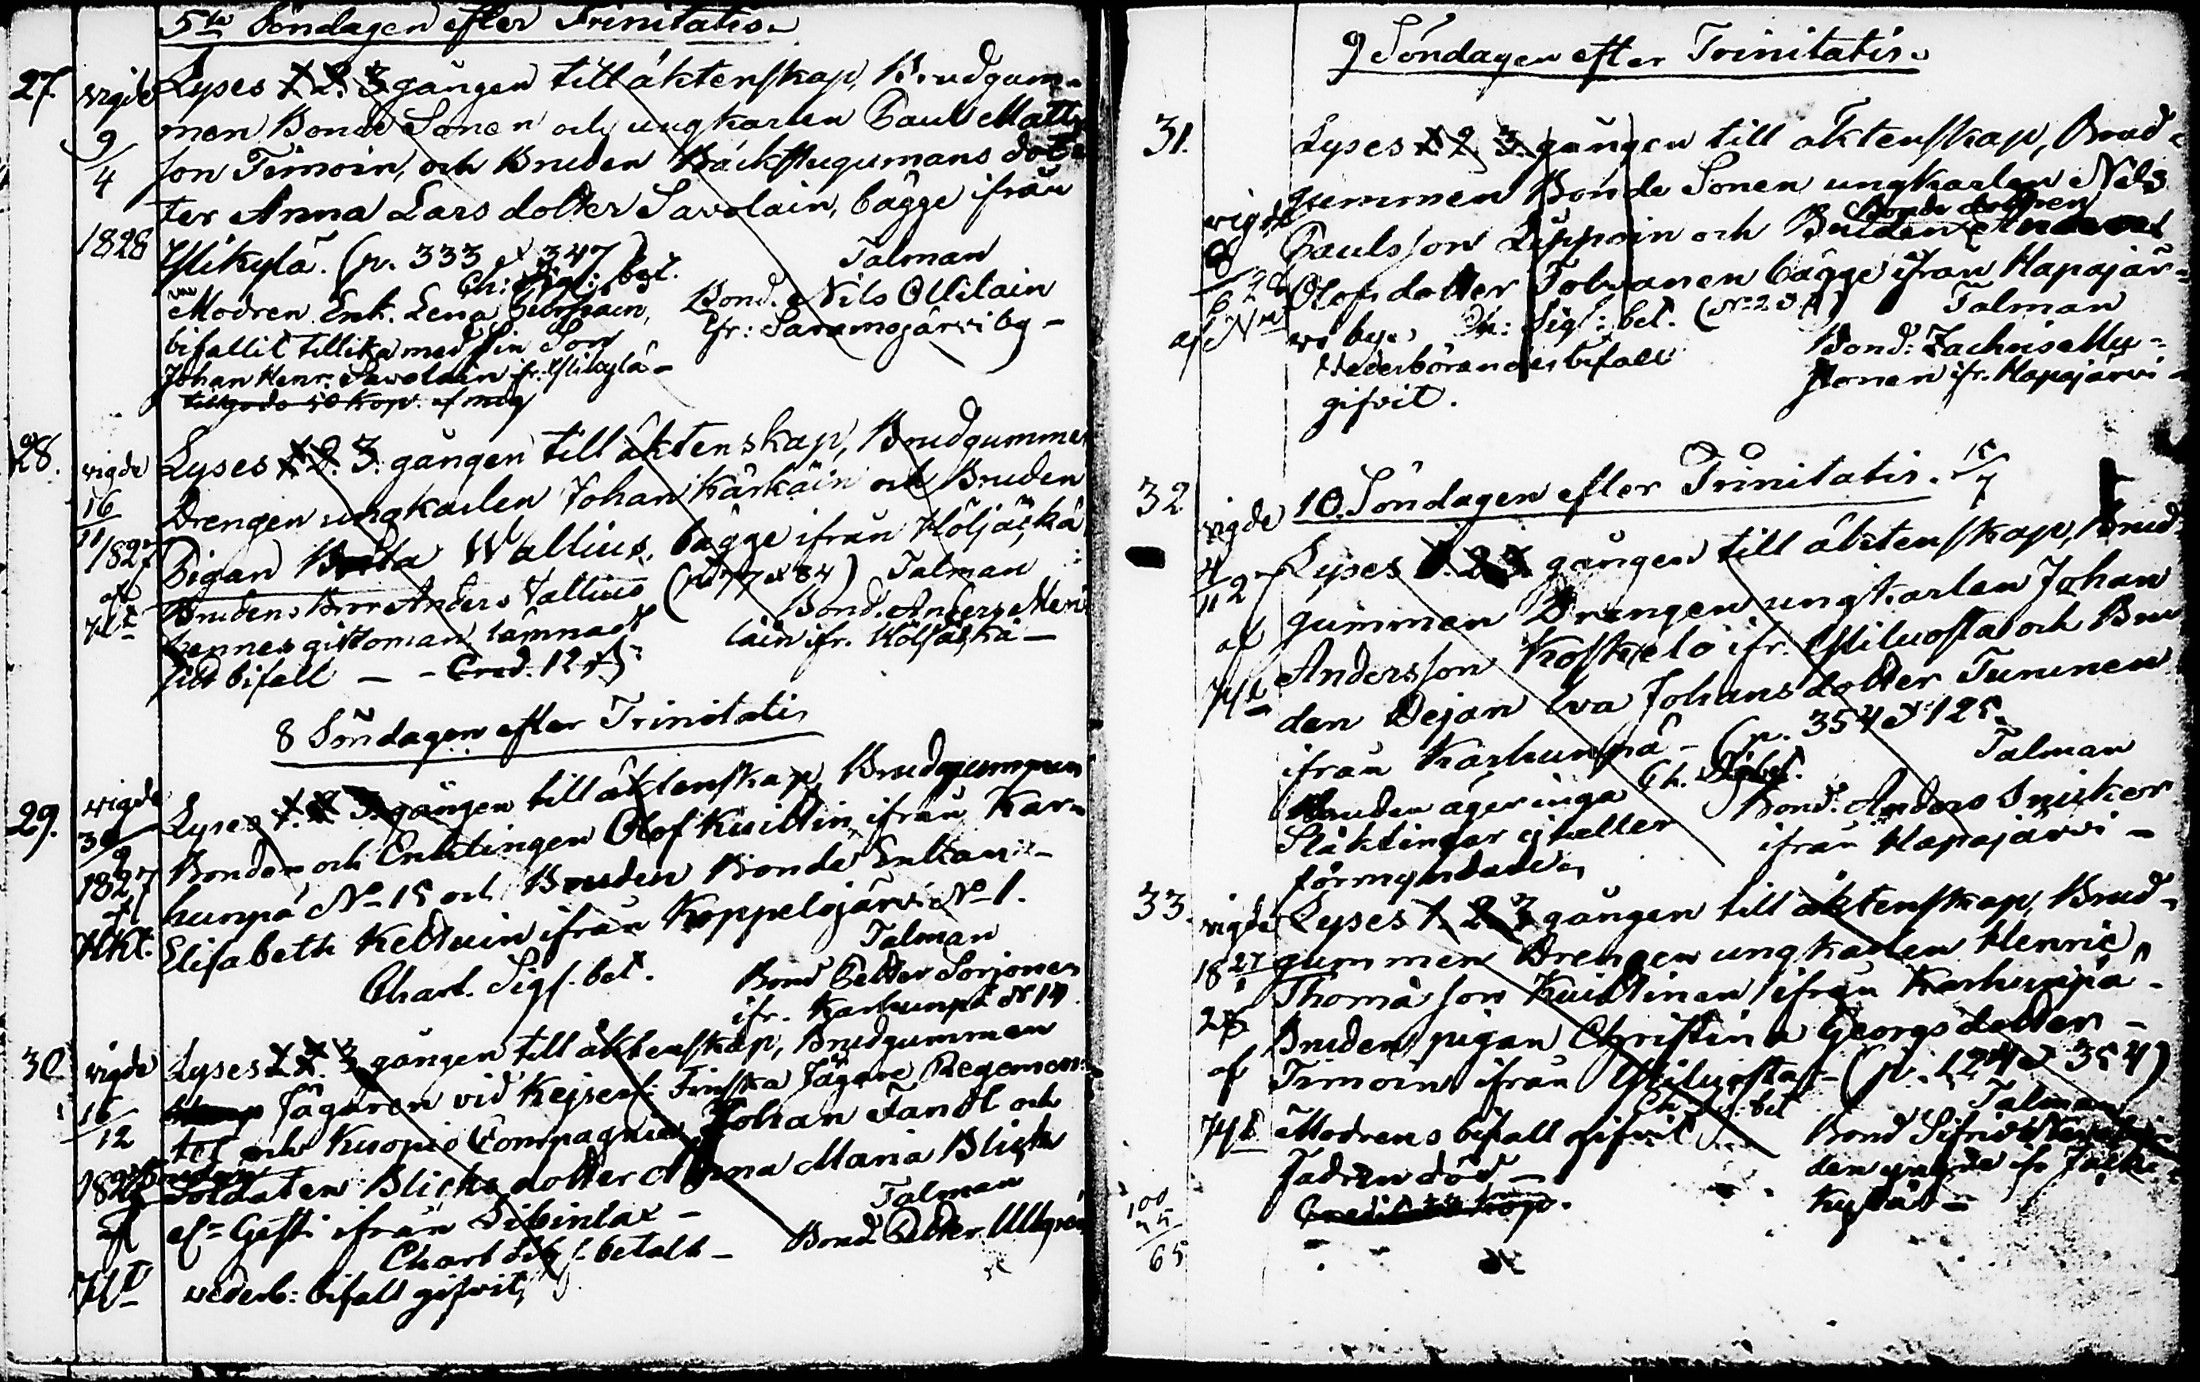 5te Söndagen efter Trinitatis
27. vigde Lyses 1. 2. 3 gången till äktenskap, Brudgum-
9 men Bonde Sonen och ungkarlen Paul Matts
4 son Timoin, och Bruden Backstugumans dot-
ter Anna Lars dotter Savolain, bägge ifrån
1828 Ylikylä. (p. 333 & 347) Talman
Ch: Sigl: bet.
Modren Enk. Lena Bond. Nils Ollilain
bifallit tillika med sin Son fr: Saramojärvi by -
Johan Henr. Savolain fr. Ylikylä -
kop. af mig
28. vigde Lyses 1. 2. 3. gången till äktenskap, Brudgummen
16 Drengen ungkarlen Johan Kärkäin och Bruden
11/1827 Pigan Brita Wallius, bägge ifrån Höljäskä
af Brudens Bror Anders Vallius (p. 77 & 84) Talman
hennes giftoman lämnadt Bond. Anders Meri
sitt bifall - - Cred. 12 läin ifr. Höljäskä -
8 Söndagen efter Trinitatis
29. vigde Lyses 1. 2. 3. gången till äktenskap, Brudgummen
30 Bonden och Enklingen Olof Kuittin, ifrån Kar-
9
1827 hunpä No 15 och Bruden Bonde Enkan -
af Elisabeth Keltuin ifrån Koppelojärvi No 1.
Talman
Chart. Sigl. bet. Bond Petter Sorjonen
ifr. Karhunpä No 14
30 vigde Lyses 1. 2. 3 gången till äktenskap, Brudgummen
16 Jägaren vid Kejserl: Finska Jägare Regemen-
12 tet och Kuopio Compagnie Johan Tandt och
1827 Bruden Soldaten Blicks dotter Anna Maria Blick
af Gesti ifrån Libinlax - Talman
Chart Sigl. betalt - Bond. Petter Ullgren
wederb: bifall gifvit,
9 Söndagen efter Trinitatis.
31. Lyses 1. 2. 3. gången till äktenskap, Brud-
vigde gummen Bonde Sonen ungkarlen Nils
8 Paulsson Lipponin och Bruden Bonde dottren
Olofs dotter Tolvanen bägge ifrån Hapajär-
vi by. Ch: Sigl: bet. Talman
Vederbörandes bifall Bond: Zachris My-
gifvit. ifr. Hapajärvi -
32 vigde 10. Söndagen efter Trinitatis. 15/7
Lyses 1. 2. 3. gången till äktenskap, Brud-
11 27 gummen Drengen ungkarlen Johan
af Andersson Koskelo ifr. Yliluosta och Bru
den Pejan Eva Johansdotter Tuninen
ifrån Karhunpä - (p. 354 & 125.
Ch. Sigl. bet. Talman
Bruden äger inga Bond. Anders Snicker
Släktingar ej heller ifrån Hapajärvi -
förmyndare,
33. vigde Lyses 1. 2. 3 gången till äktenskap, Brud-
1827 gummen Drengen ungkarlen Henric
Thomä son Kuittinen ifrån Karhunpä -
Bruden pigan Christina Georgs dotter -
af Timoin ifrån Yliluosta - (p. 124 & 354)
Ch. Sigl. bet Talman
Modrens bifall gifvit Bond Sifrid
Fadren död - den yngre ifr
Credit kop. kylä -
100
65